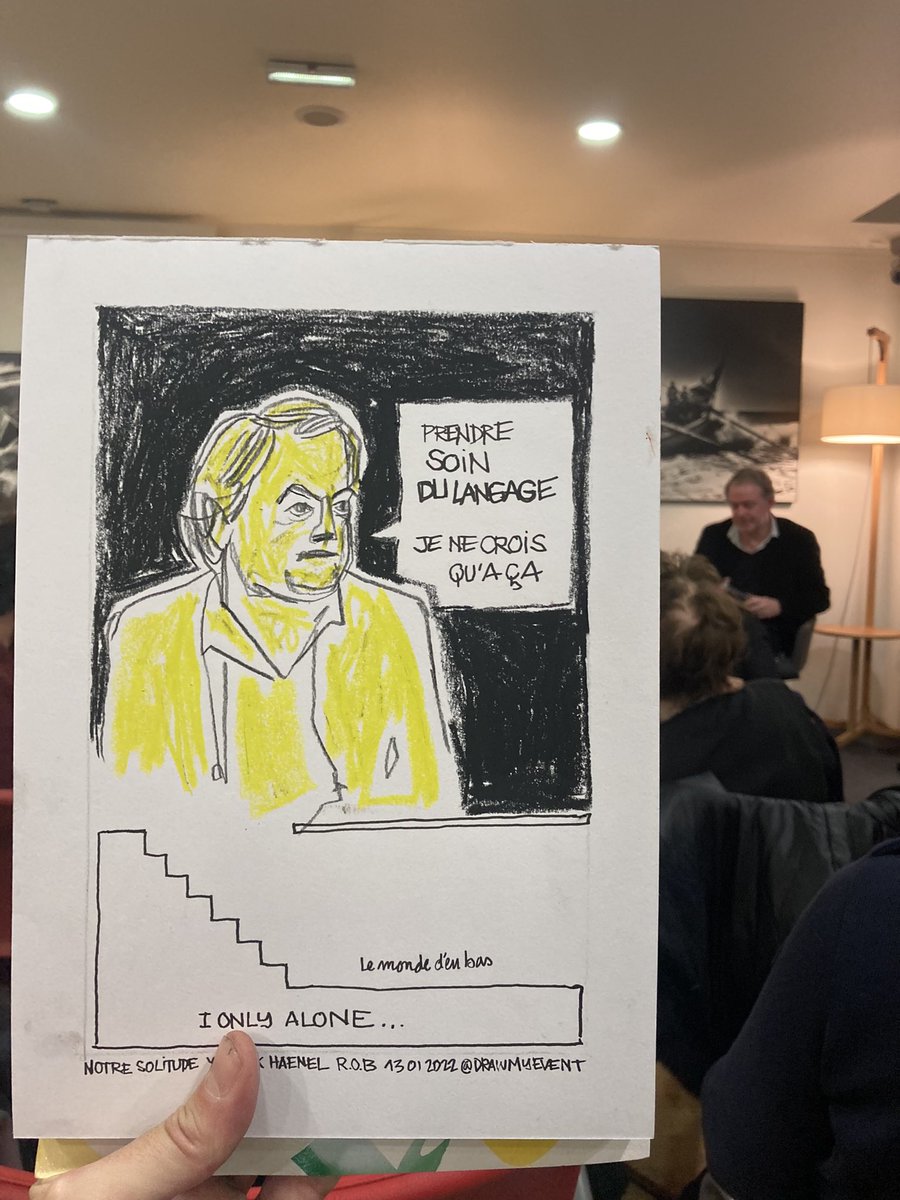 PRENDRE
SOIN
DU LANGAGE
JE NE CROIS
QU'A ÇA
Le monde d'en bas
I ONLY ALONE...
NOTRE SOLITUDE HAENEL R.O.B 13 01 2022 @DRAWMYEVENT